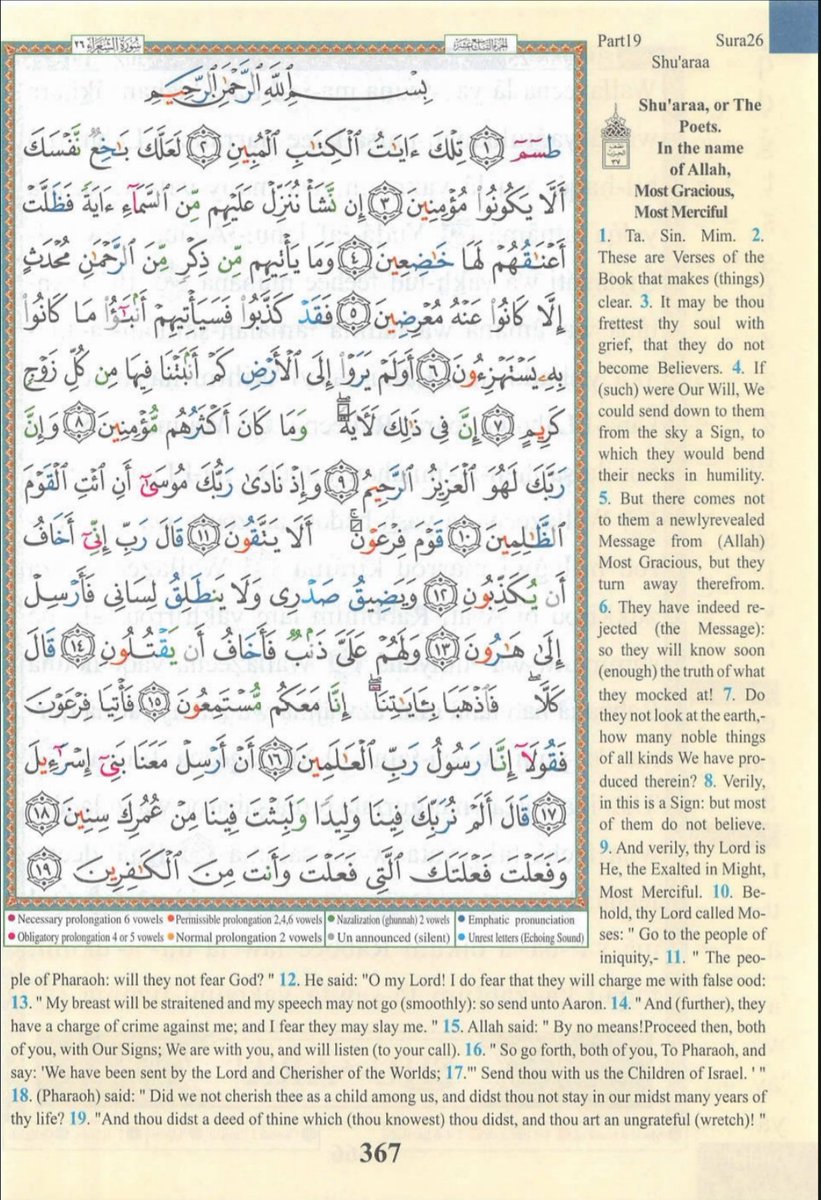 سُورَةُ الشُّعَرَاءِ ٢٦
الجُزْءُ التَّاسِعَ عَشَرَ
Part19 Sura26
Shu'araa
بِسْمِ ٱللَّهِ ٱلرَّحْمَٰنِ ٱلرَّحِيمِ
طسٓمٓ ۝١ تِلْكَ ءَايَٰتُ ٱلْكِتَٰبِ ٱلْمُبِينِ ۝٢ لَعَلَّكَ بَٰخِعٌ نَّفْسَكَ
أَلَّا يَكُونُوا۟ مُؤْمِنِينَ ۝٣ إِن نَّشَأْ نُنَزِّلْ عَلَيْهِم مِّنَ ٱلسَّمَآءِ ءَايَةً فَظَلَّتْ
أَعْنَٰقُهُمْ لَهَا خَٰضِعِينَ ۝٤ وَمَا يَأْتِيهِم مِّن ذِكْرٍ مِّنَ ٱلرَّحْمَٰنِ مُحْدَثٍ
إِلَّا كَانُوا۟ عَنْهُ مُعْرِضِينَ ۝٥ فَقَدْ كَذَّبُوا۟ فَسَيَأْتِيهِمْ أَنۢبَٰٓؤُا۟ مَا كَانُوا۟
بِهِۦ يَسْتَهْزِءُونَ ۝٦ أَوَلَمْ يَرَوْا۟ إِلَى ٱلْأَرْضِ كَمْ أَنۢبَتْنَا فِيهَا مِن كُلِّ زَوْجٍ
كَرِيمٍ ۝٧ إِنَّ فِى ذَٰلِكَ لَءَايَةً ۖ وَمَا كَانَ أَكْثَرُهُم مُّؤْمِنِينَ ۝٨ وَإِنَّ
رَبَّكَ لَهُوَ ٱلْعَزِيزُ ٱلرَّحِيمُ ۝٩ وَإِذْ نَادَىٰ رَبُّكَ مُوسَىٰٓ أَنِ ٱئْتِ ٱلْقَوْمَ
ٱلظَّٰلِمِينَ ۝١٠ قَوْمَ فِرْعَوْنَ ۚ أَلَا يَتَّقُونَ ۝١١ قَالَ رَبِّ إِنِّىٓ أَخَافُ
أَن يُكَذِّبُونِ ۝١٢ وَيَضِيقُ صَدْرِى وَلَا يَنطَلِقُ لِسَانِى فَأَرْسِلْ
إِلَىٰ هَٰرُونَ ۝١٣ وَلَهُمْ عَلَىَّ ذَنۢبٌ فَأَخَافُ أَن يَقْتُلُونِ ۝١٤ قَالَ
كَلَّا ۖ فَٱذْهَبَا بِـَٔايَٰتِنَآ ۖ إِنَّا مَعَكُم مُّسْتَمِعُونَ ۝١٥ فَأْتِيَا فِرْعَوْنَ
فَقُولَآ إِنَّا رَسُولُ رَبِّ ٱلْعَٰلَمِينَ ۝١٦ أَنْ أَرْسِلْ مَعَنَا بَنِىٓ إِسْرَٰٓءِيلَ
۝١٧ قَالَ أَلَمْ نُرَبِّكَ فِينَا وَلِيدًا وَلَبِثْتَ فِينَا مِنْ عُمُرِكَ سِنِينَ ۝١٨
وَفَعَلْتَ فَعْلَتَكَ ٱلَّتِى فَعَلْتَ وَأَنتَ مِنَ ٱلْكَٰفِرِينَ ۝١٩
Necessary prolongation 6 vowels Permissible prolongation 2,4,6 vowels Nazalization (ghunnah) 2 vowels Emphatic pronunciation
Obligatory prolongation 4 or 5 vowels Normal prolongation 2 vowels Un announced (silent) Unrest letters (Echoing Sound)
Shu'araa, or The
Poets.
In the name
of Allah,
Most Gracious,
Most Merciful
1. Ta. Sin. Mim. 2.
These are Verses of the
Book that makes (things)
clear. 3. It may be thou
frettest thy soul with
grief, that they do not
become Believers. 4. If
(such) were Our Will, We
could send down to them
from the sky a Sign, to
which they would bend
their necks in humility.
5. But there comes not
to them a newlyrevealed
Message from (Allah)
Most Gracious, but they
turn away therefrom.
6. They have indeed re-
jected (the Message):
so they will know soon
(enough) the truth of what
they mocked at! 7. Do
they not look at the earth,-
how many noble things
of all kinds We have pro-
duced therein? 8. Verily,
in this is a Sign: but most
of them do not believe.
9. And verily, thy Lord is
He, the Exalted in Might,
Most Merciful. 10. Be-
hold, thy Lord called Mo-
ses: " Go to the people of
iniquity,- 11. " The peo-
ple of Pharaoh: will they not fear God? " 12. He said: "O my Lord! I do fear that they will charge me with false ood:
13. " My breast will be straitened and my speech may not go (smoothly): so send unto Aaron. 14. " And (further), they
have a charge of crime against me; and I fear they may slay me. " 15. Allah said: " By no means!Proceed then, both
of you, with Our Signs; We are with you, and will listen (to your call). 16. " So go forth, both of you, To Pharaoh, and
say: 'We have been sent by the Lord and Cherisher of the Worlds; 17."' Send thou with us the Children of Israel. ' "
18. (Pharaoh) said: " Did we not cherish thee as a child among us, and didst thou not stay in our midst many years of
thy life? 19. "And thou didst a deed of thine which (thou knowest) thou didst, and thou art an ungrateful (wretch)! "
367